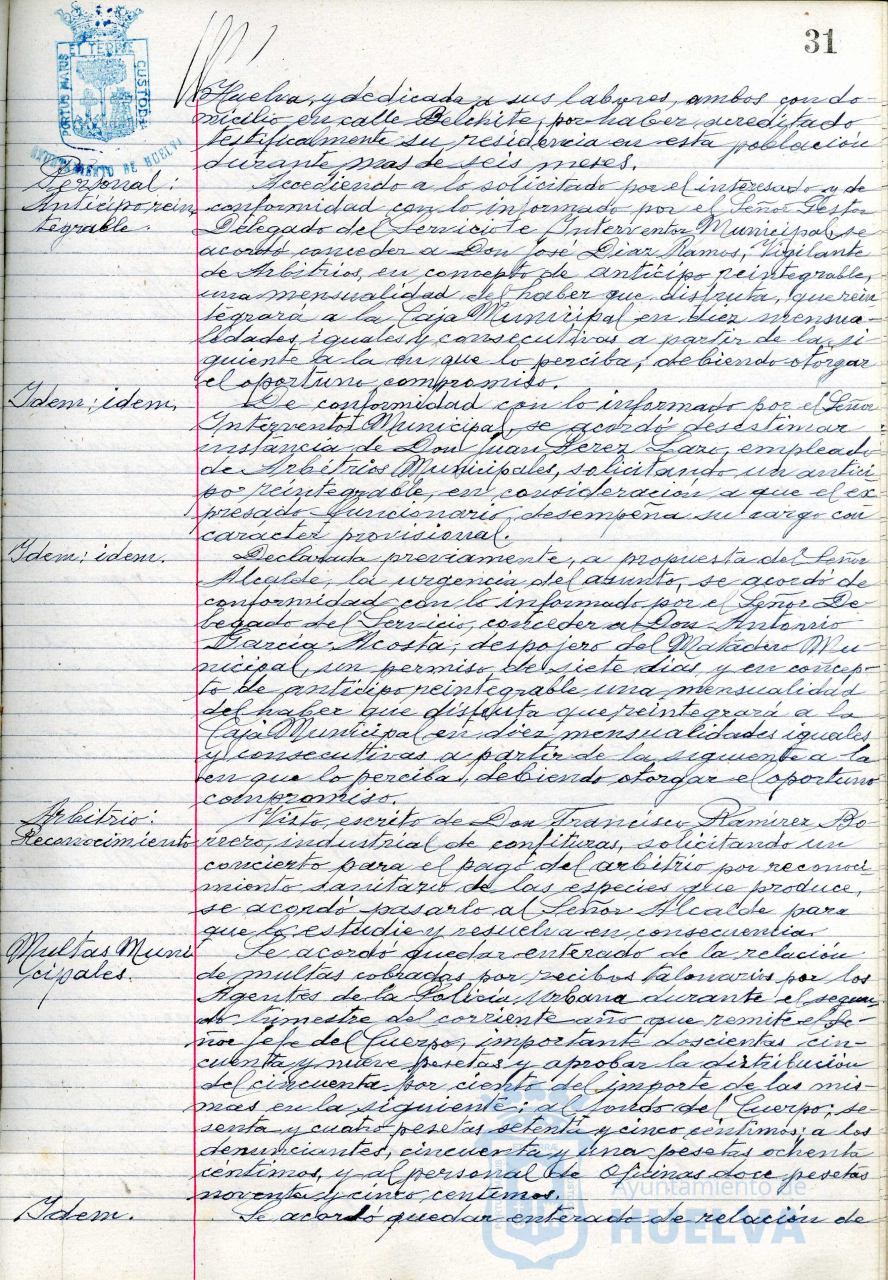 31
PORTUS MARIS ET TERRE CUSTODIA
AYUNTAMIENTO DE HUELVA
Huelva, y dedicada a sus labores, ambos con do-
micilio en calle Belchite, por haber acreditado
testificalmente su residencia en esta población
durante mas de seis meses.
Personal:
Anticipo rein-
tegrable.
Accediendo a lo solicitado por el interesado y de
conformidad con lo informado por el Señor Gestor
Delegado del Servicio e Interventor Municipal, se
acordó conceder a Don José Diaz Ramos, Vigilante
de Arbitrios, en concepto de anticipo reintegrable,
una mensualidad del haber que disfruta, que rein-
tegrará a la Caja Municipal en diez mensua-
lidades iguales y consecutivas a partir de la si-
guiente a la en que lo perciba, debiendo otorgar
el oportuno compromiso.
Idem: idem.
De conformidad con lo informado por el Señor
Interventor Municipal, se acordó desestimar
instancia de Don Juan Perez Lazo, empleado
de Arbitrios Municipales, solicitando un antici-
po reintegrable, en consideración a que el ex-
presado funcionario, desempeña su cargo con
carácter provisional.
Idem: idem.
Declarada previamente, a propuesta del Señor
Alcalde, la urgencia del asunto, se acordó de
conformidad con lo informado por el Señor De-
legado del Servicio, conceder a Don Antonio
García Acosta, despojero del Matadero Mu-
nicipal, un permiso de siete dias, y en concep-
to de anticipo reintegrable una mensualidad
del haber que disfruta que reintegrará a la
Caja Municipal en diez mensualidades iguales
y consecutivas a partir de la siguiente a la
en que lo perciba, debiendo otorgar el oportuno
compromiso.
Arbitrio:
Reconocimiento
Visto, escrito de Don Francisco Ramirez Bo-
rrero, industrial de confituras, solicitando un
concierto para el pago del arbitrio por reconoci-
miento sanitario de las especies que produce,
se acordó pasarlo al Señor Alcalde para
que lo estudie y resuelva en consecuencia.
Multas Muni-
cipales.
Se acordó quedar enterado de la relación
de multas cobradas por recibos talonarios por los
Agentes de la Policía Urbana durante el segun-
do trimestre del corriente año que remite el Se-
ñor Jefe del Cuerpo, importante doscientas cin-
cuenta y nueve pesetas y aprobar la distribución
del cincuenta por ciento del importe de las mis-
mas en la siguiente: al fondo del Cuerpo; se-
senta y cuatro pesetas setenta y cinco céntimos; a los
denunciantes, cincuenta y una pesetas ochenta
céntimos, y al personal de Oficinas doce pesetas
noventa y cinco centimos.
Idem.
Se acordó quedar enterado de relación de
Ayuntamiento de
HUELVA